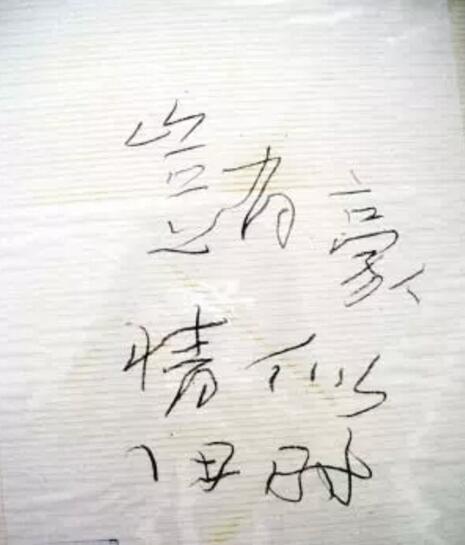 岂有豪
情似
旧时